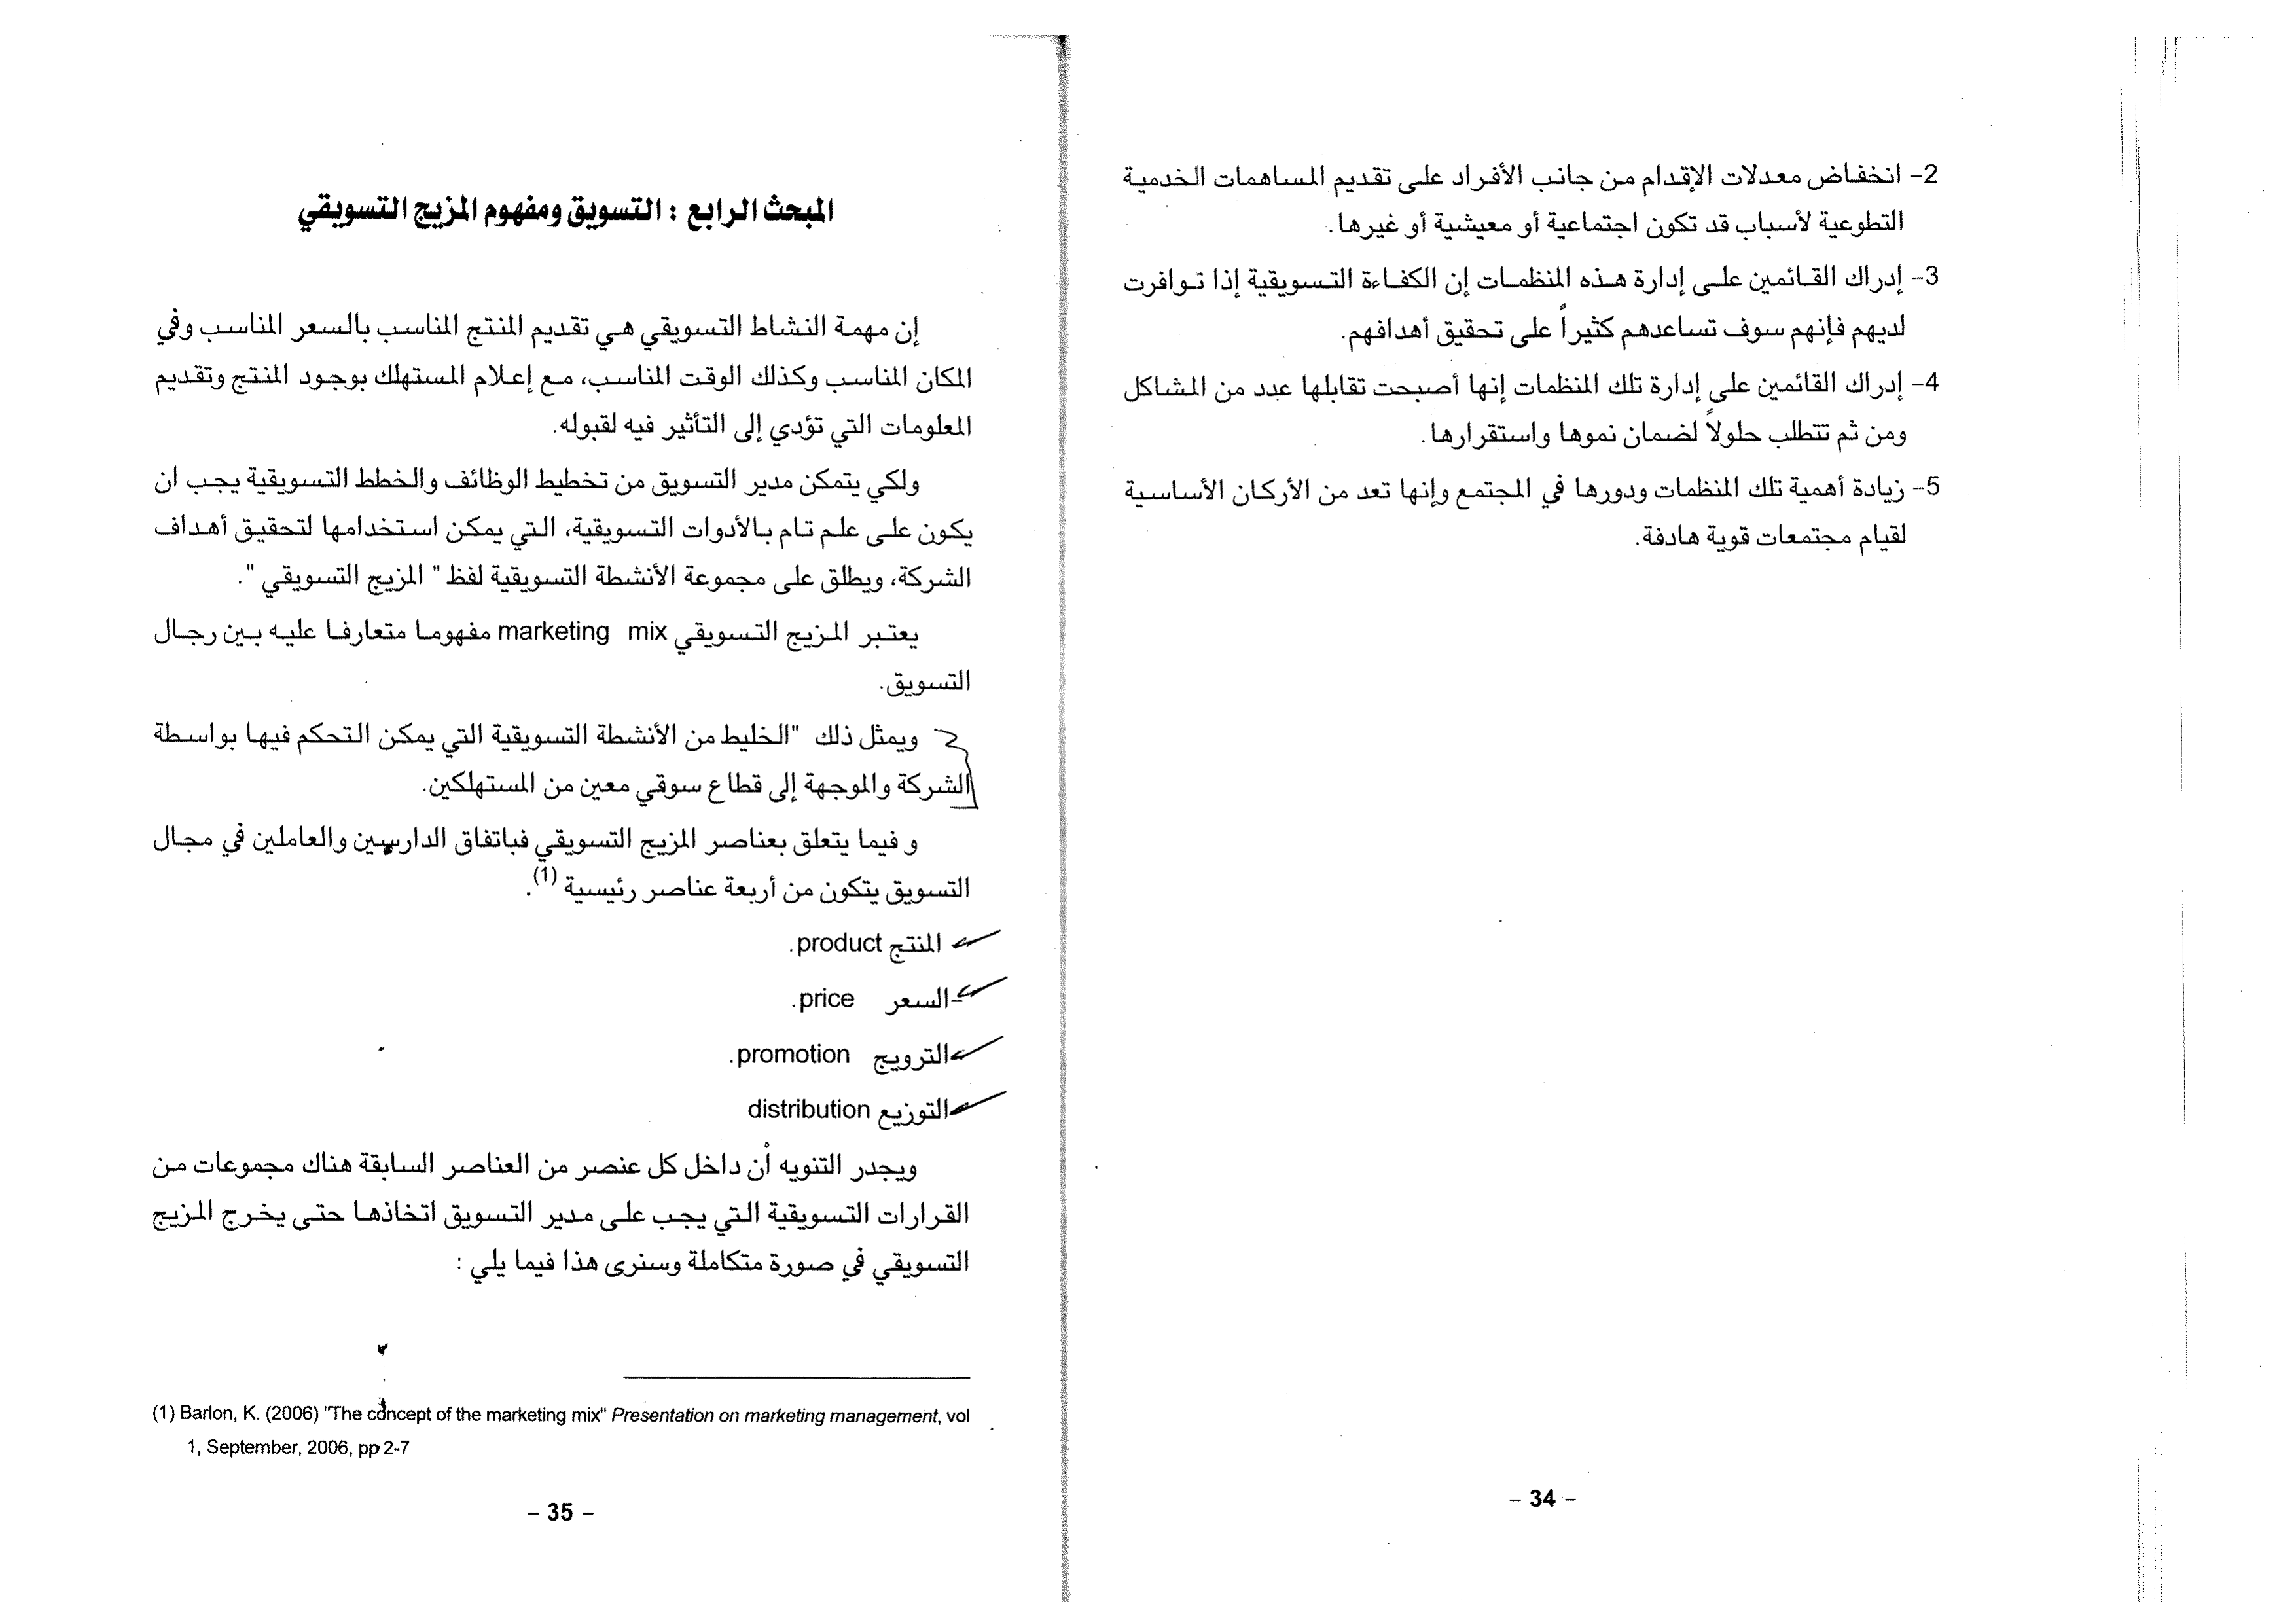 2- انخفاض معدلات الإقدام من جانب الأفراد على تقديم المساهمات الخدمية
التطوعية لأسباب قد تكون اجتماعية أو معيشية أو غيرها.
3- إدراك القائمين على إدارة هذه المنظمات إن الكفاءة التسويقية إذا توافرت
لديهم فإنهم سوف تساعدهم كثيراً على تحقيق أهدافهم.
4- إدراك القائمين على إدارة تلك المنظمات إنها أصبحت تقابلها عدد من المشاكل
ومن ثم تتطلب حلولاً لضمان نموها واستقرارها.
5- زيادة أهمية تلك المنظمات ودورها في المجتمع وإنها تعد من الأركان الأساسية
لقيام مجتمعات قوية هادفة.
- 34 -
المبحث الرابع : التسويق ومفهوم المزيج التسويقي
إن مهمة النشاط التسويقي هي تقديم المنتج المناسب بالسعر المناسب وفي
المكان المناسب وكذلك الوقت المناسب، مع إعلام المستهلك بوجود المنتج وتقديم
المعلومات التي تؤدي إلى التأثير فيه لقبوله.
ولكي يتمكن مدير التسويق من تخطيط الوظائف والخطط التسويقية يجب ان
يكون على علم تام بالأدوات التسويقية، التي يمكن استخدامها لتحقيق أهداف
الشركة، ويطلق على مجموعة الأنشطة التسويقية لفظ " المزيج التسويقي ".
يعتبر المزيج التسويقي marketing mix مفهوما متعارفا عليه بين رجال
التسويق.
ويمثل ذلك "الخليط من الأنشطة التسويقية التي يمكن التحكم فيها بواسطة
الشركة والموجهة إلى قطاع سوقي معين من المستهلكين.
و فيما يتعلق بعناصر المزيج التسويقي فباتفاق الدارسين والعاملين في مجال
التسويق يتكون من أربعة عناصر رئيسية (1).
المنتج product.
-السعر price.
-الترويج promotion.
-التوزيع distribution
ويجدر التنويه أن داخل كل عنصر من العناصر السابقة هناك مجموعات من
القرارات التسويقية التي يجب على مدير التسويق اتخاذها حتى يخرج المزيج
التسويقي في صورة متكاملة وسنرى هذا فيما يلي :
(1) Barlon, K. (2006) "The concept of the marketing mix" Presentation on marketing management, vol
1, September, 2006, pp 2-7
- 35 -